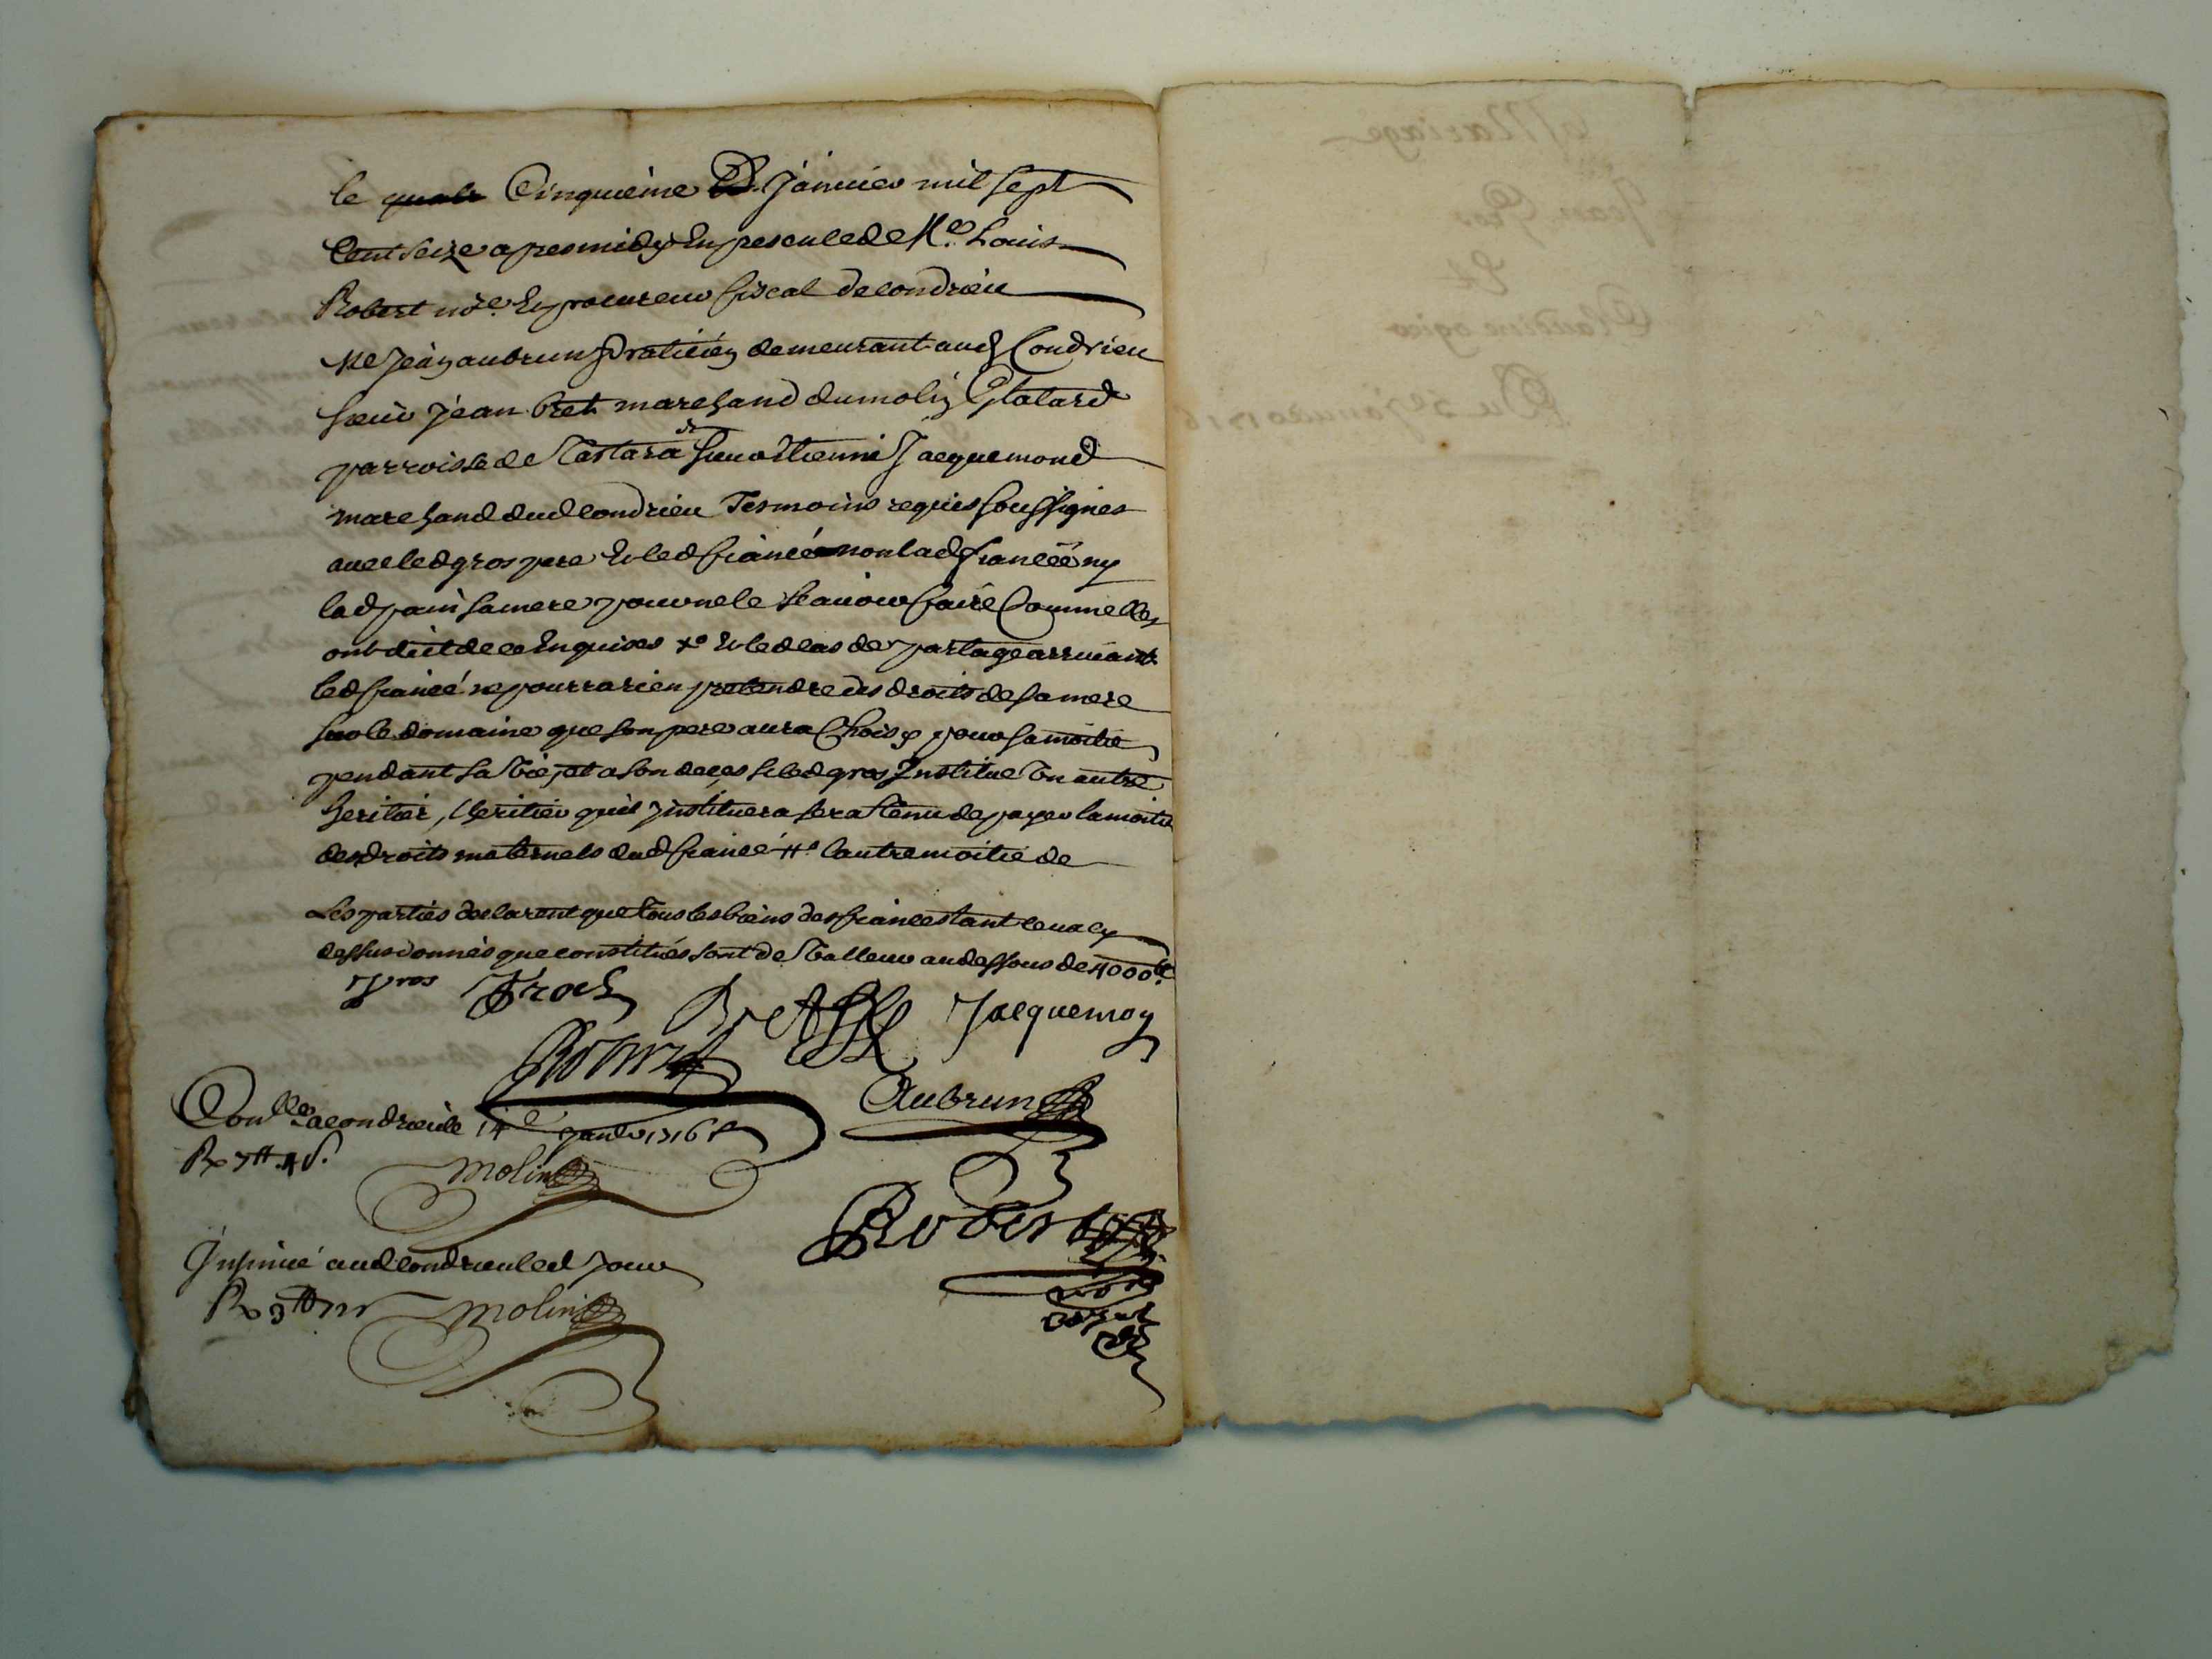 le quatr Cinquieme de Janvier mil sept
Cent seize apres midy En presence de Me. Louis
Robert nore. Et procureur fiscal de condrieu
Me Jean aubrun Praticien demeurant aud Condrieu
sieur Jean Bret marchand du molin
parroisse de & sieur Etienne Jacquemond
marchand dud condrieu Tesmoins requis soussignes
avec led gros pere Et led fiancé non lad fiancéé ny
lad sa mere pour ne le scavoir faire Comme elles
ont dict de ce Enquises xo Et led cas de partage arrivant
led fiancé ne pourra rien pretendre des droits de sa mere
sur le domaine que son pere aura Choisy pour sa moitié
pendant sa Vie, et a son deces si led gros Institue Un autre
heritier, l'heritier quil Instituera sera Tenu de payer la moitie
des droits maternels dud fiancé l'autre moitié de
Les parties declarent que Tous les biens des fiances tant ceux cy
dessus donnés que constitués sont de Valleur au dessous de 4000tt.
gros Bret Jacquemon
Robert
Aubrun
Conllé a condrieu le 14e janvr 1716
Molin
Robert
Insinué aud condrieu led Jour
Molin
Mariage
Jean Gros
Et
Claudine ogier
Du 5e Janvier 1716